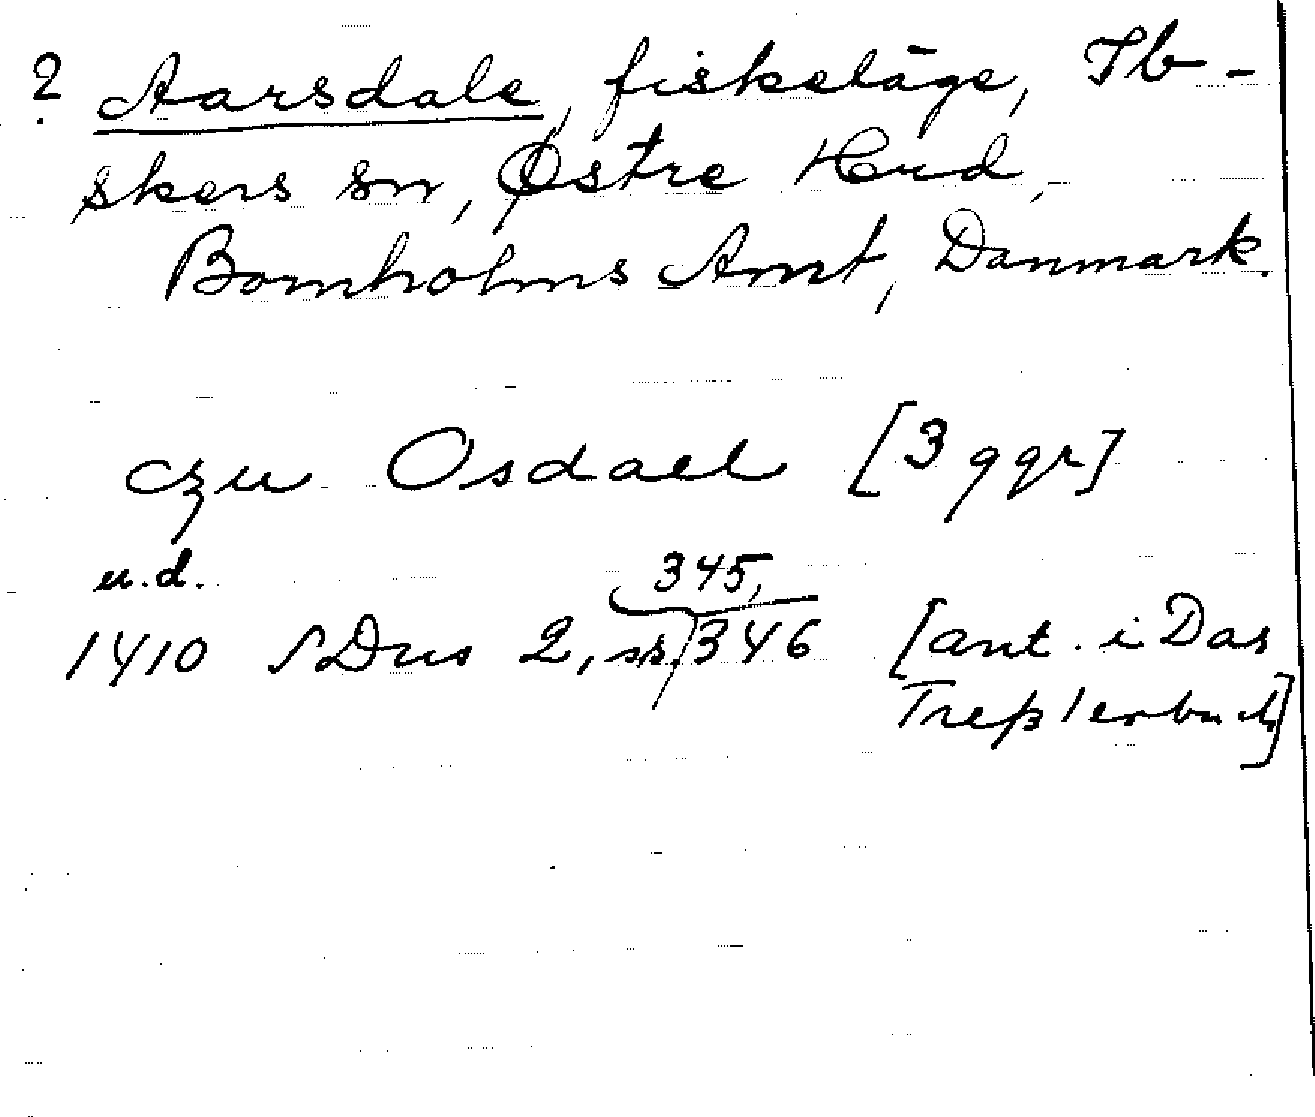 ? Aarsdale, fiskeläge, Ib-
skers sn, Østre Hrd,
Bornholms Amt, Danmark.
czu Osdael [3 ggr]
u.d.
345,
1410 SDns 2, ss. 346 [ant. i Das
Treßlerbuch]